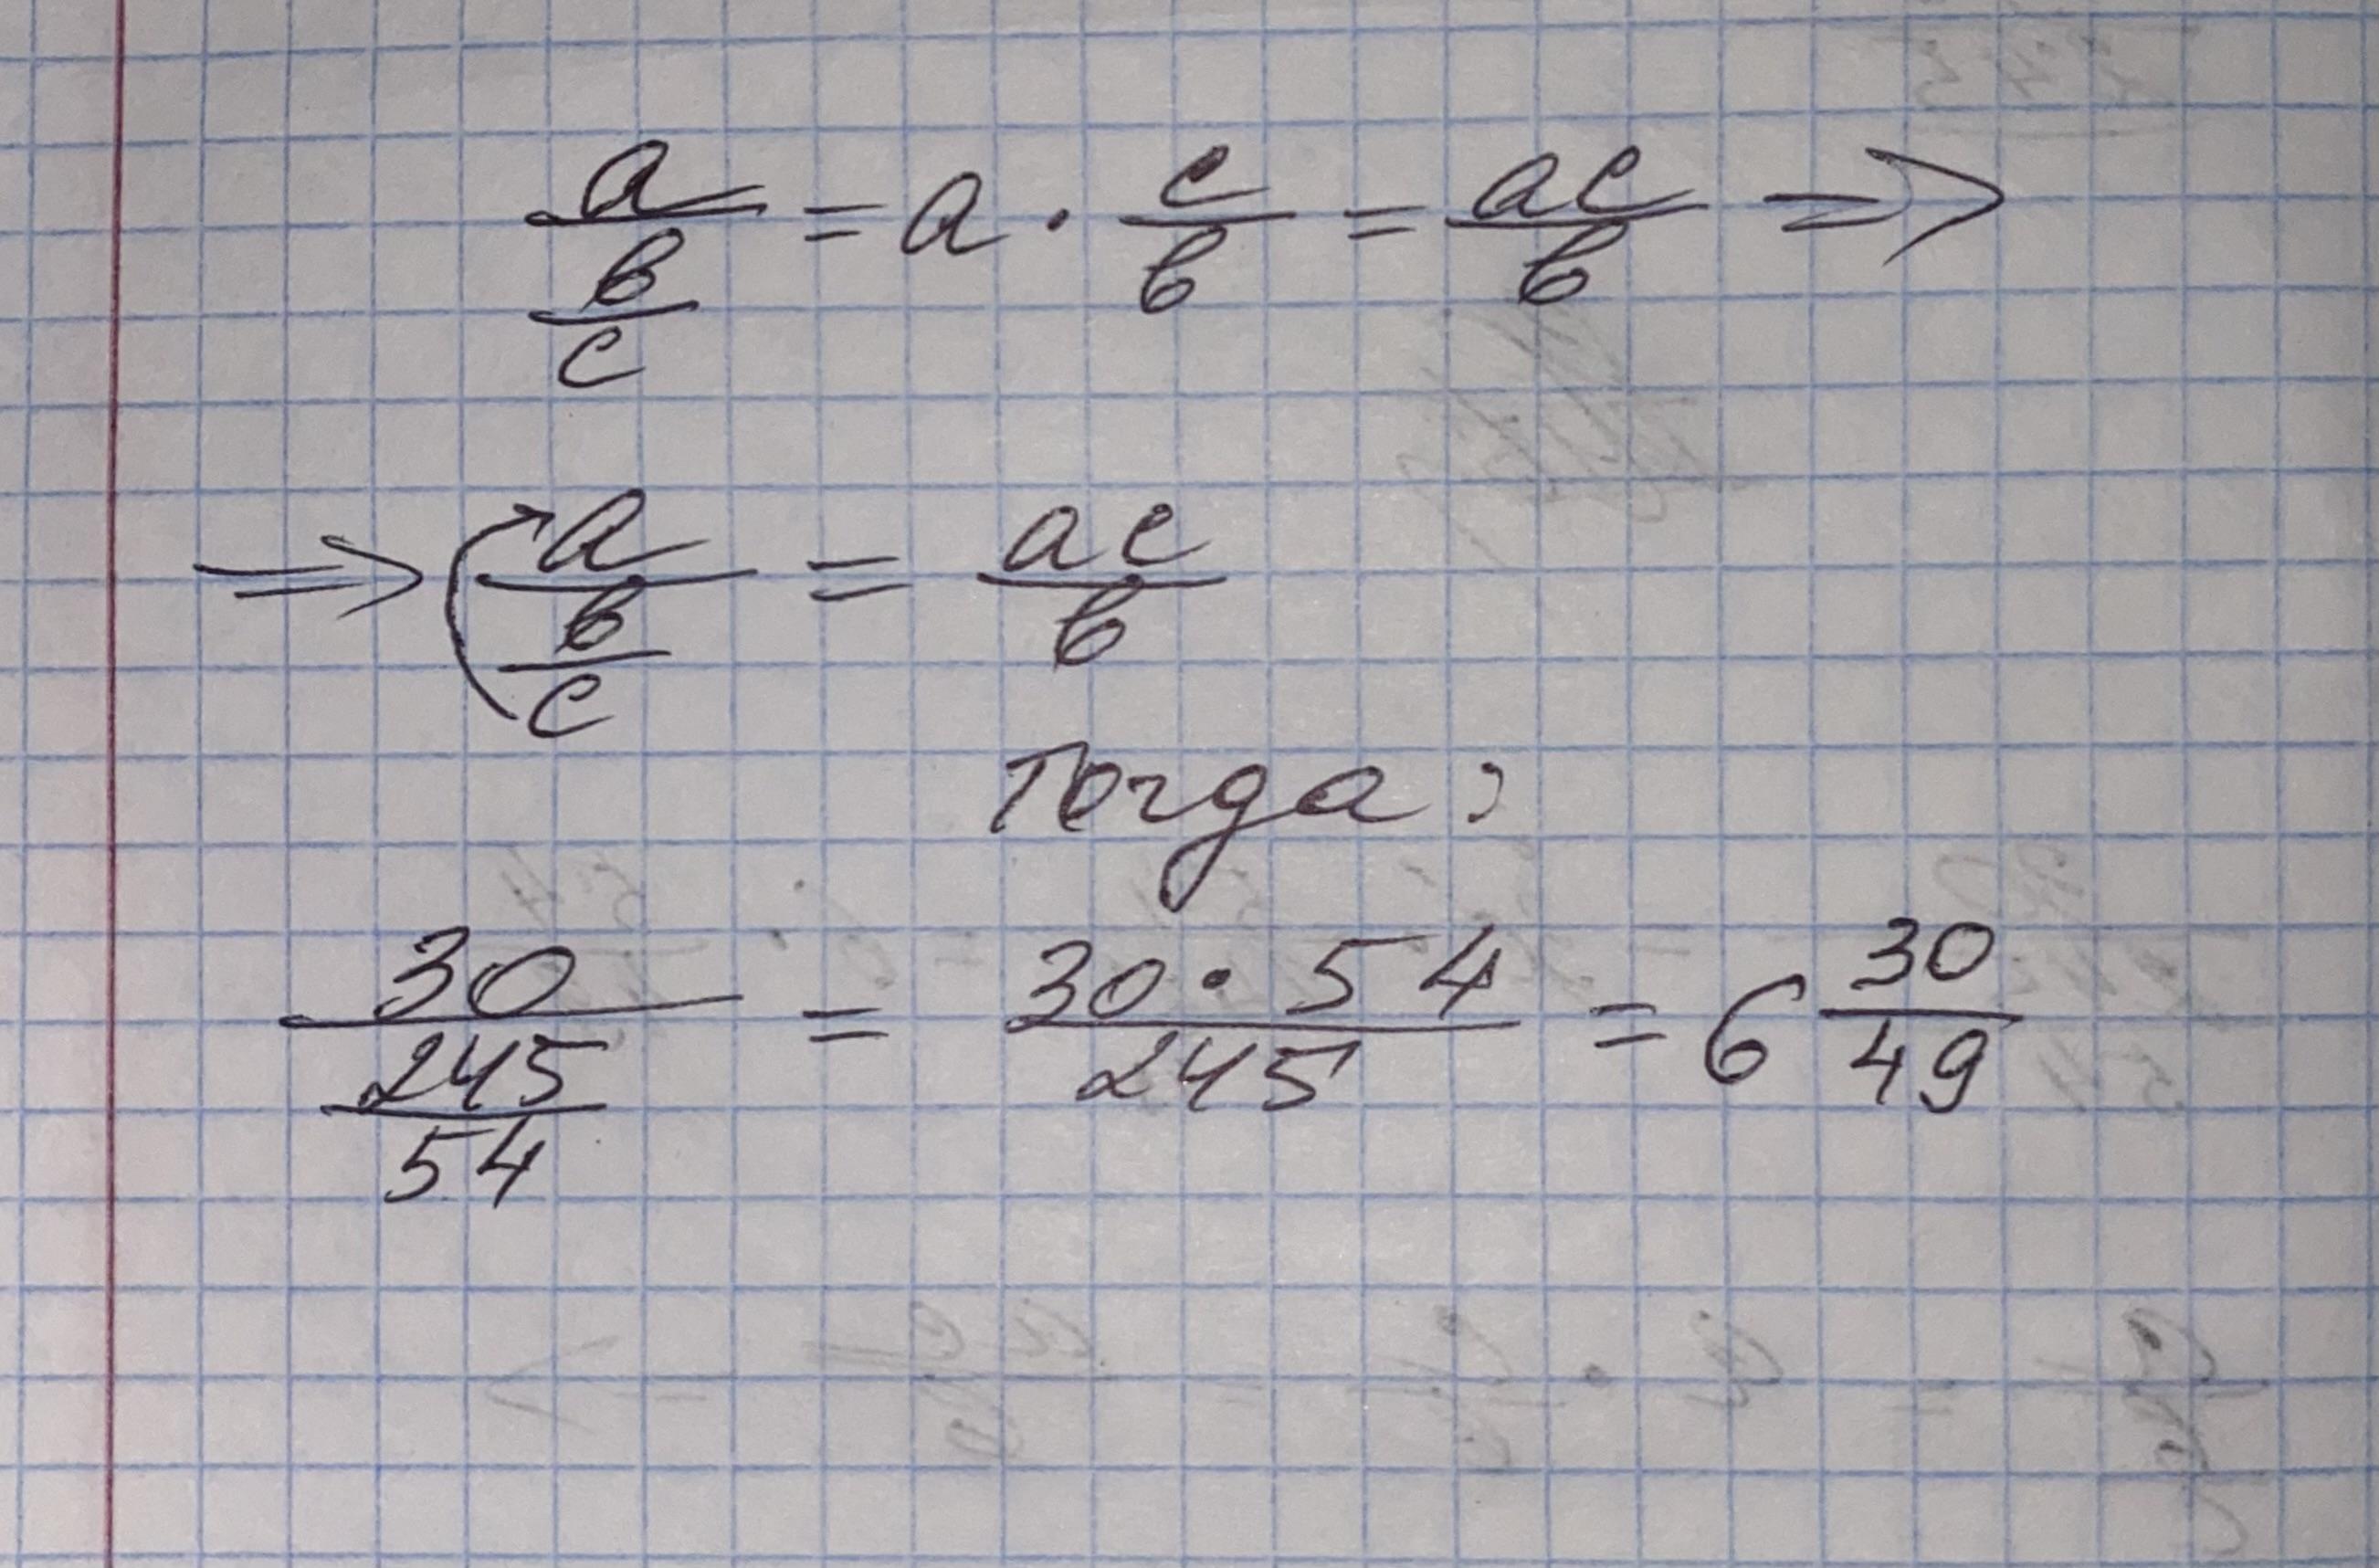 a/(b/c) = a · c/b = ac/b =>
=> a/(b/c) = ac/b
Тогда:
30/(245/54) = 30·54/245 = 6 30/49